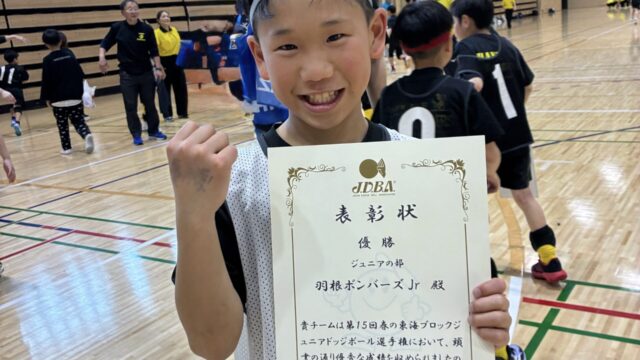 JDBA
表彰状
優勝
ジュニアの部
羽根ボンバーズJr 殿
貴チームは第15回春の東海ブロックジ
ュニアドッジボール選手権において、頭
書の通り優秀な成績を収められましたの